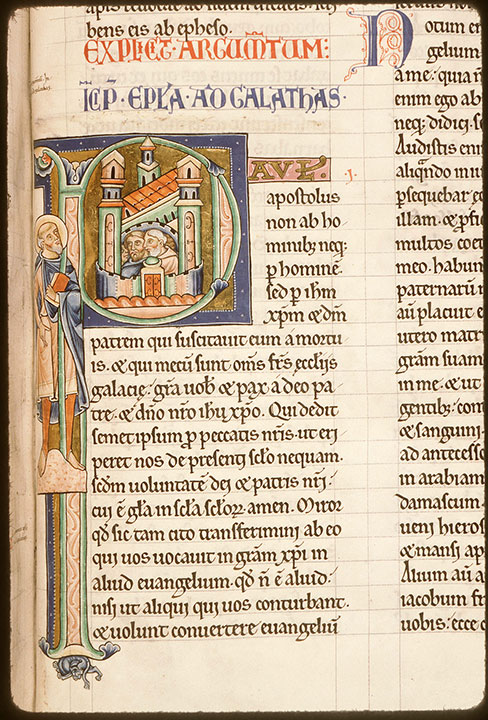 bens eis ab epheso.
EXPLICIT ARGUMTUM:
INCP EPLA AD GALATHAS.
PAVL
apostolus
non ab ho
minibꝫ neqꝫ
p̱ hominē
sed p̱ ihm̄
xpm̄ & dm̄
patrem qui suscitauit eum a mortu
is. & qui mecū sunt om̄s fr̄s ecclijs
galacię. gr̄a uob̄ & pax a deo pa
tre. & dn̄o nr̄o ihū xp̄o. Qui dedit
semetipsum p̱ peccatis nr̄is. ut eri
peret nos de presenti sc̄lo nequam.
scdm̄ uoluntatē dei & patris nr̄i.
cui ē gl̄a in sc̄la sc̄lorꝝ amen. Miror
qd̄ sic tam cito transferimini ab eo
qui uos uocauit in grām xp̄i in
aliud euangelium. qd̄ n̄ ē aliud.
nisi ut aliqui qui uos conturbant.
& uolunt conuertere euangeliū
Notum en
gelium
a me. quia n
enim ego ab
neqꝫ didici. s
Audistis eni
aliqndo in iu
p̱sequebar ec
illam. & p̱fic
multos coet
meo. habun
paternarū
aū placuit e
utero matr
grām suam
in me. & ut
gentibꝫ. con
& sanguini
ad antecesso
in arabiam
damascum
ueni hieros
& mansi ap
Alium aū a
iacobum fr
uobis. ecce c